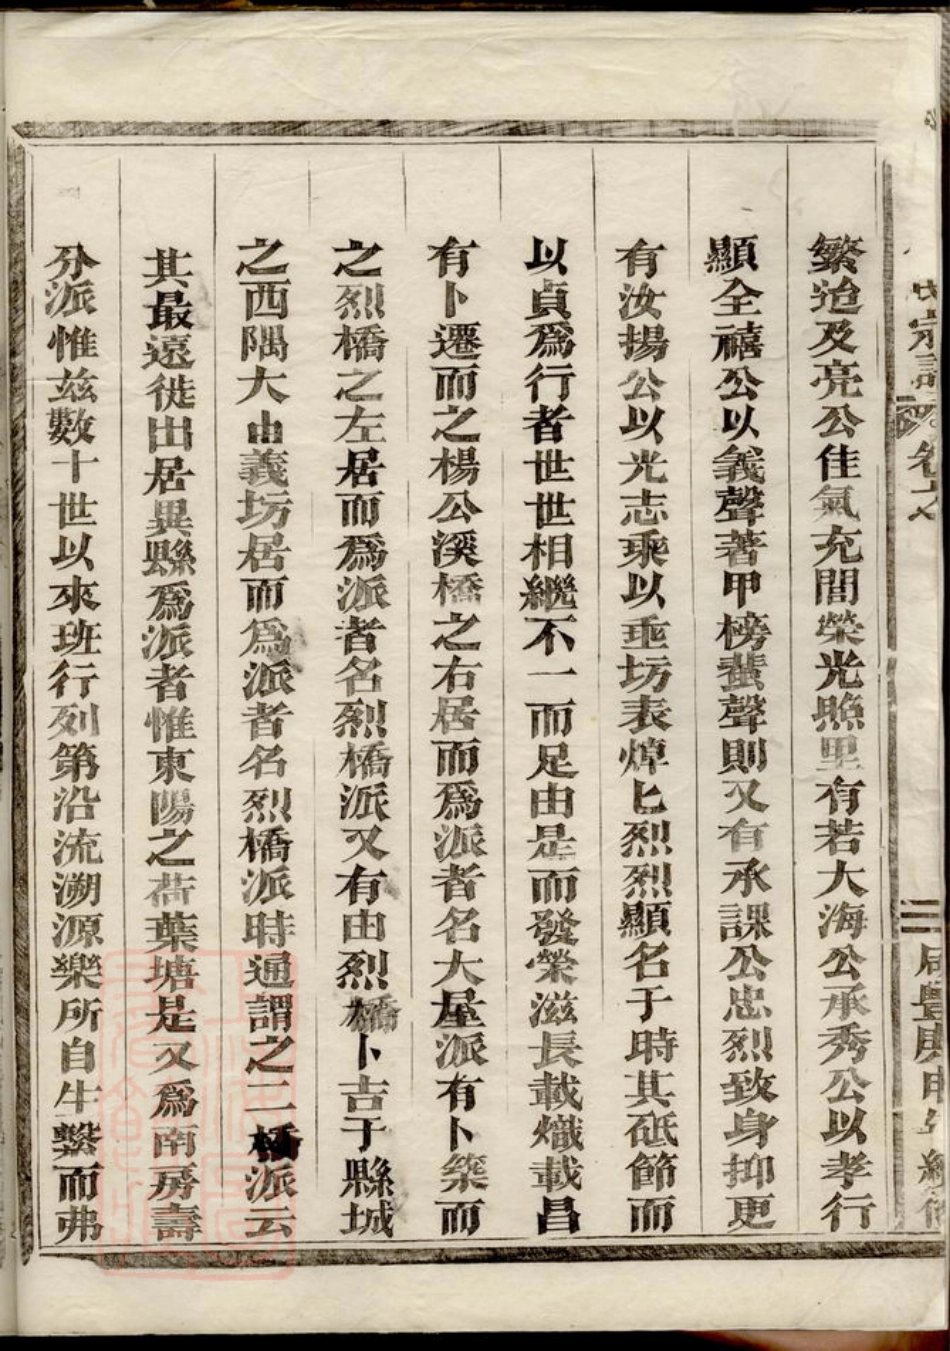 繁迨及亮公佳氣充閭榮光照里有若大海公承秀公以孝行
顯全禧公以義聲著甲榜蜚聲則又有承課公忠烈致身抑更
有汝揚公以光志乘以垂坊表焯匕烈烈顯名于時其砥節而
以貞爲行者世世相繼不一而足由是而發榮滋長載熾載昌
有卜遷而之楊公溪橋之右居而爲派者名大屋派有卜築而
之烈橋之左居而爲派者名烈橋派又有由烈橋卜吉于縣城
之西隅大由義坊居而爲派者名烈橋派時通謂之二橋派云
其最遠徙出居異縣爲派者惟東陽之荷葉塘是又爲南房壽
分派惟玆數十世以來班行列第沿流溯源樂所自生繫而弗
氏宗譜 卷之
咸豐庚申年續修